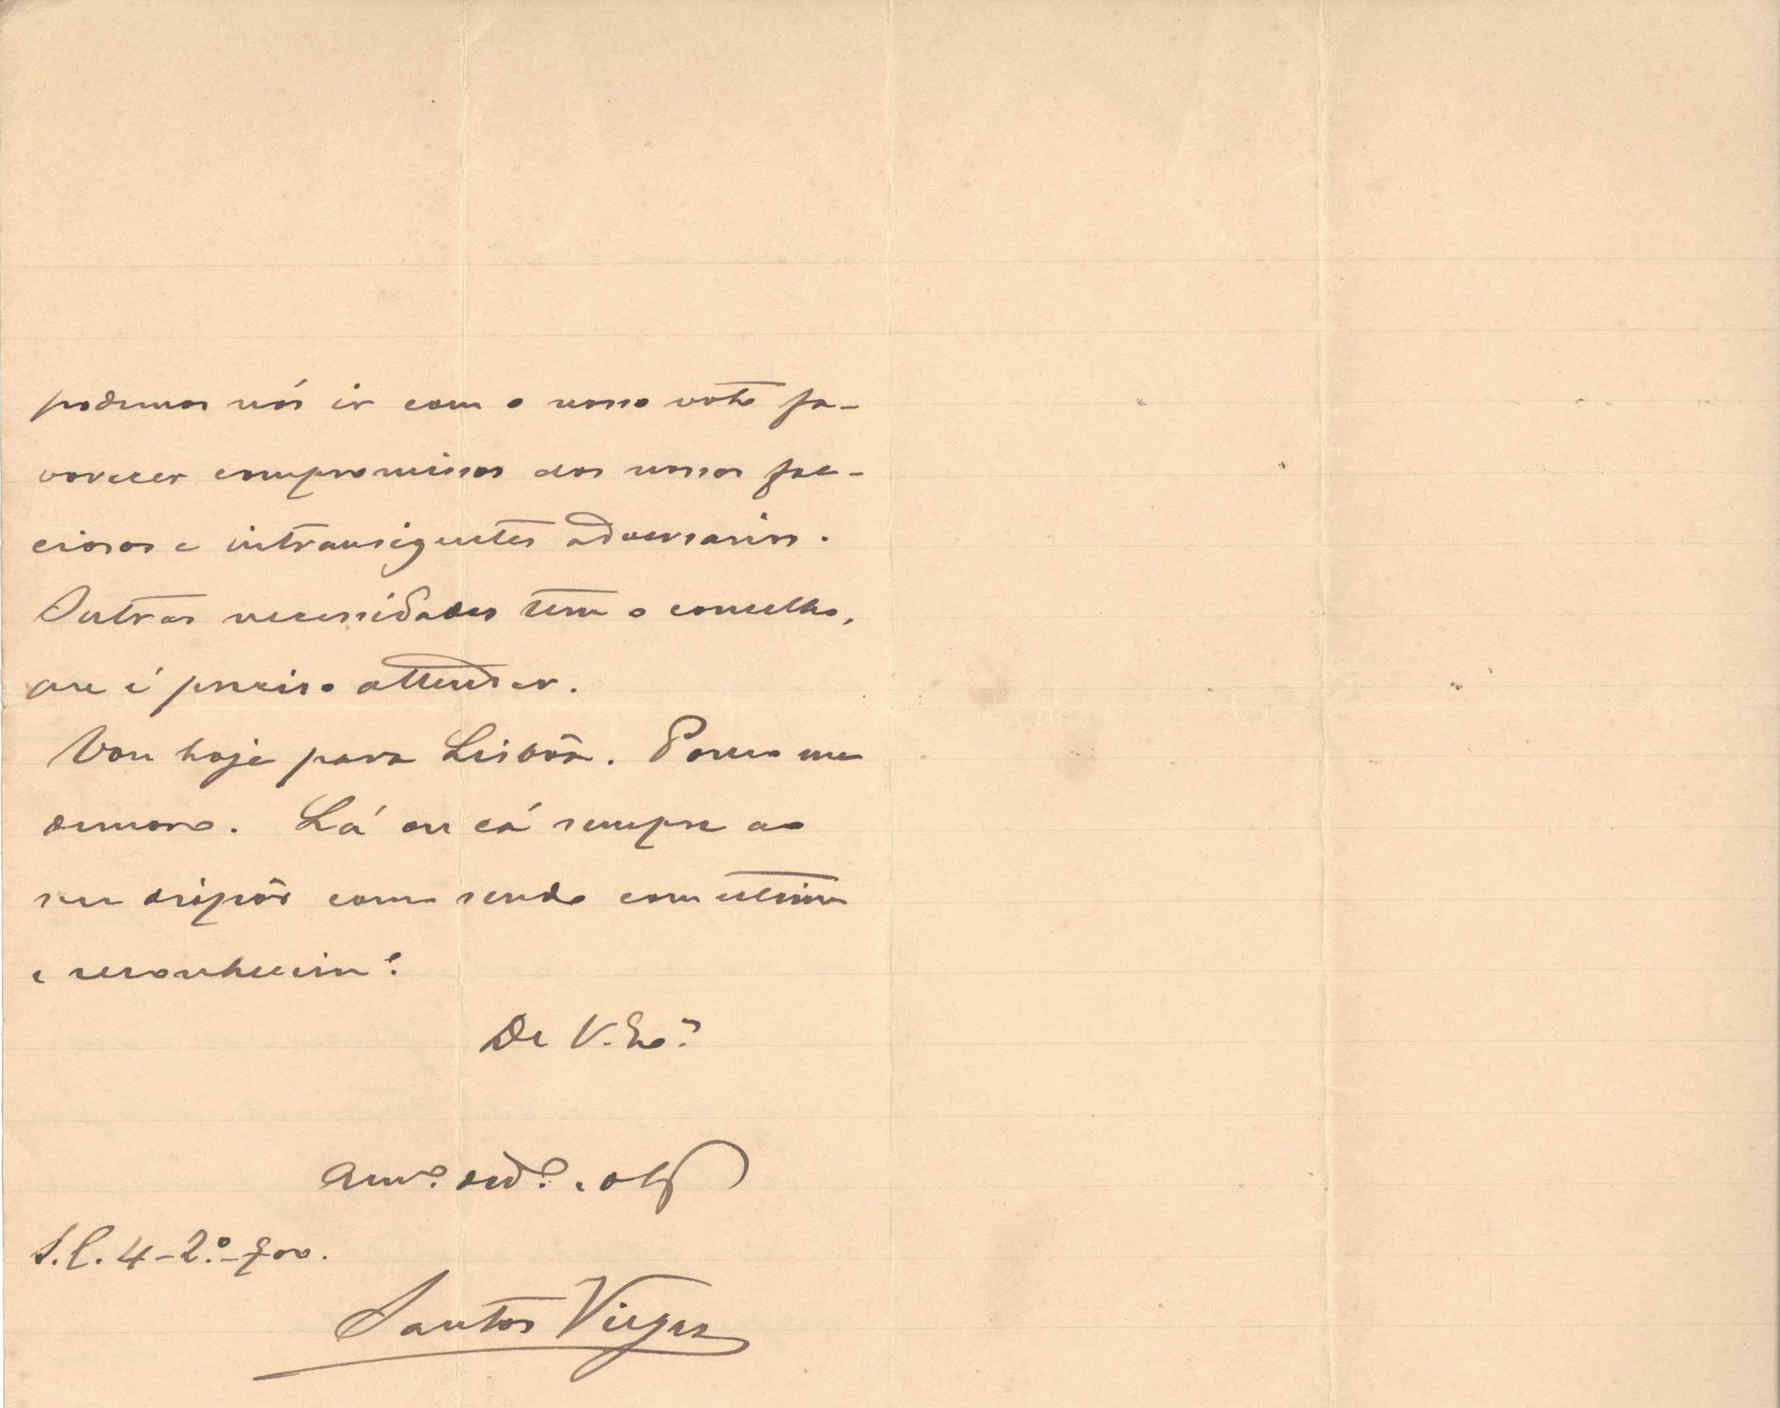 podemos nós ir com o nosso voto fa-
vorecer compromissos dos nossos fac-
ciosos e intransigentes adversarios.
Outras necessidades tem o concelho,
que é preciso attender.
Vou hoje para Lisbôa. Pouco me
demoro. Lá ou cá sempre ao
seu dispôr como sendo com estima
e reconhecim.to
De V. Ex.a
Am.o ded.o e ob
S.C. 4-2.o-900.
Santos Viegas